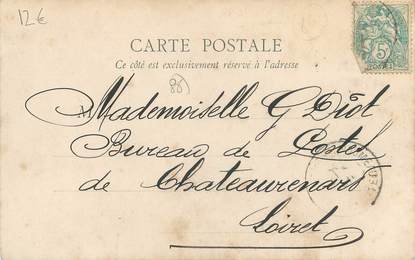 12€
CARTE POSTALE
Ce côté est exclusivement réservé à l'adresse
88
Mademoiselle G Diot
Bureau de Postes
de Chateaurenard
Loiret
5